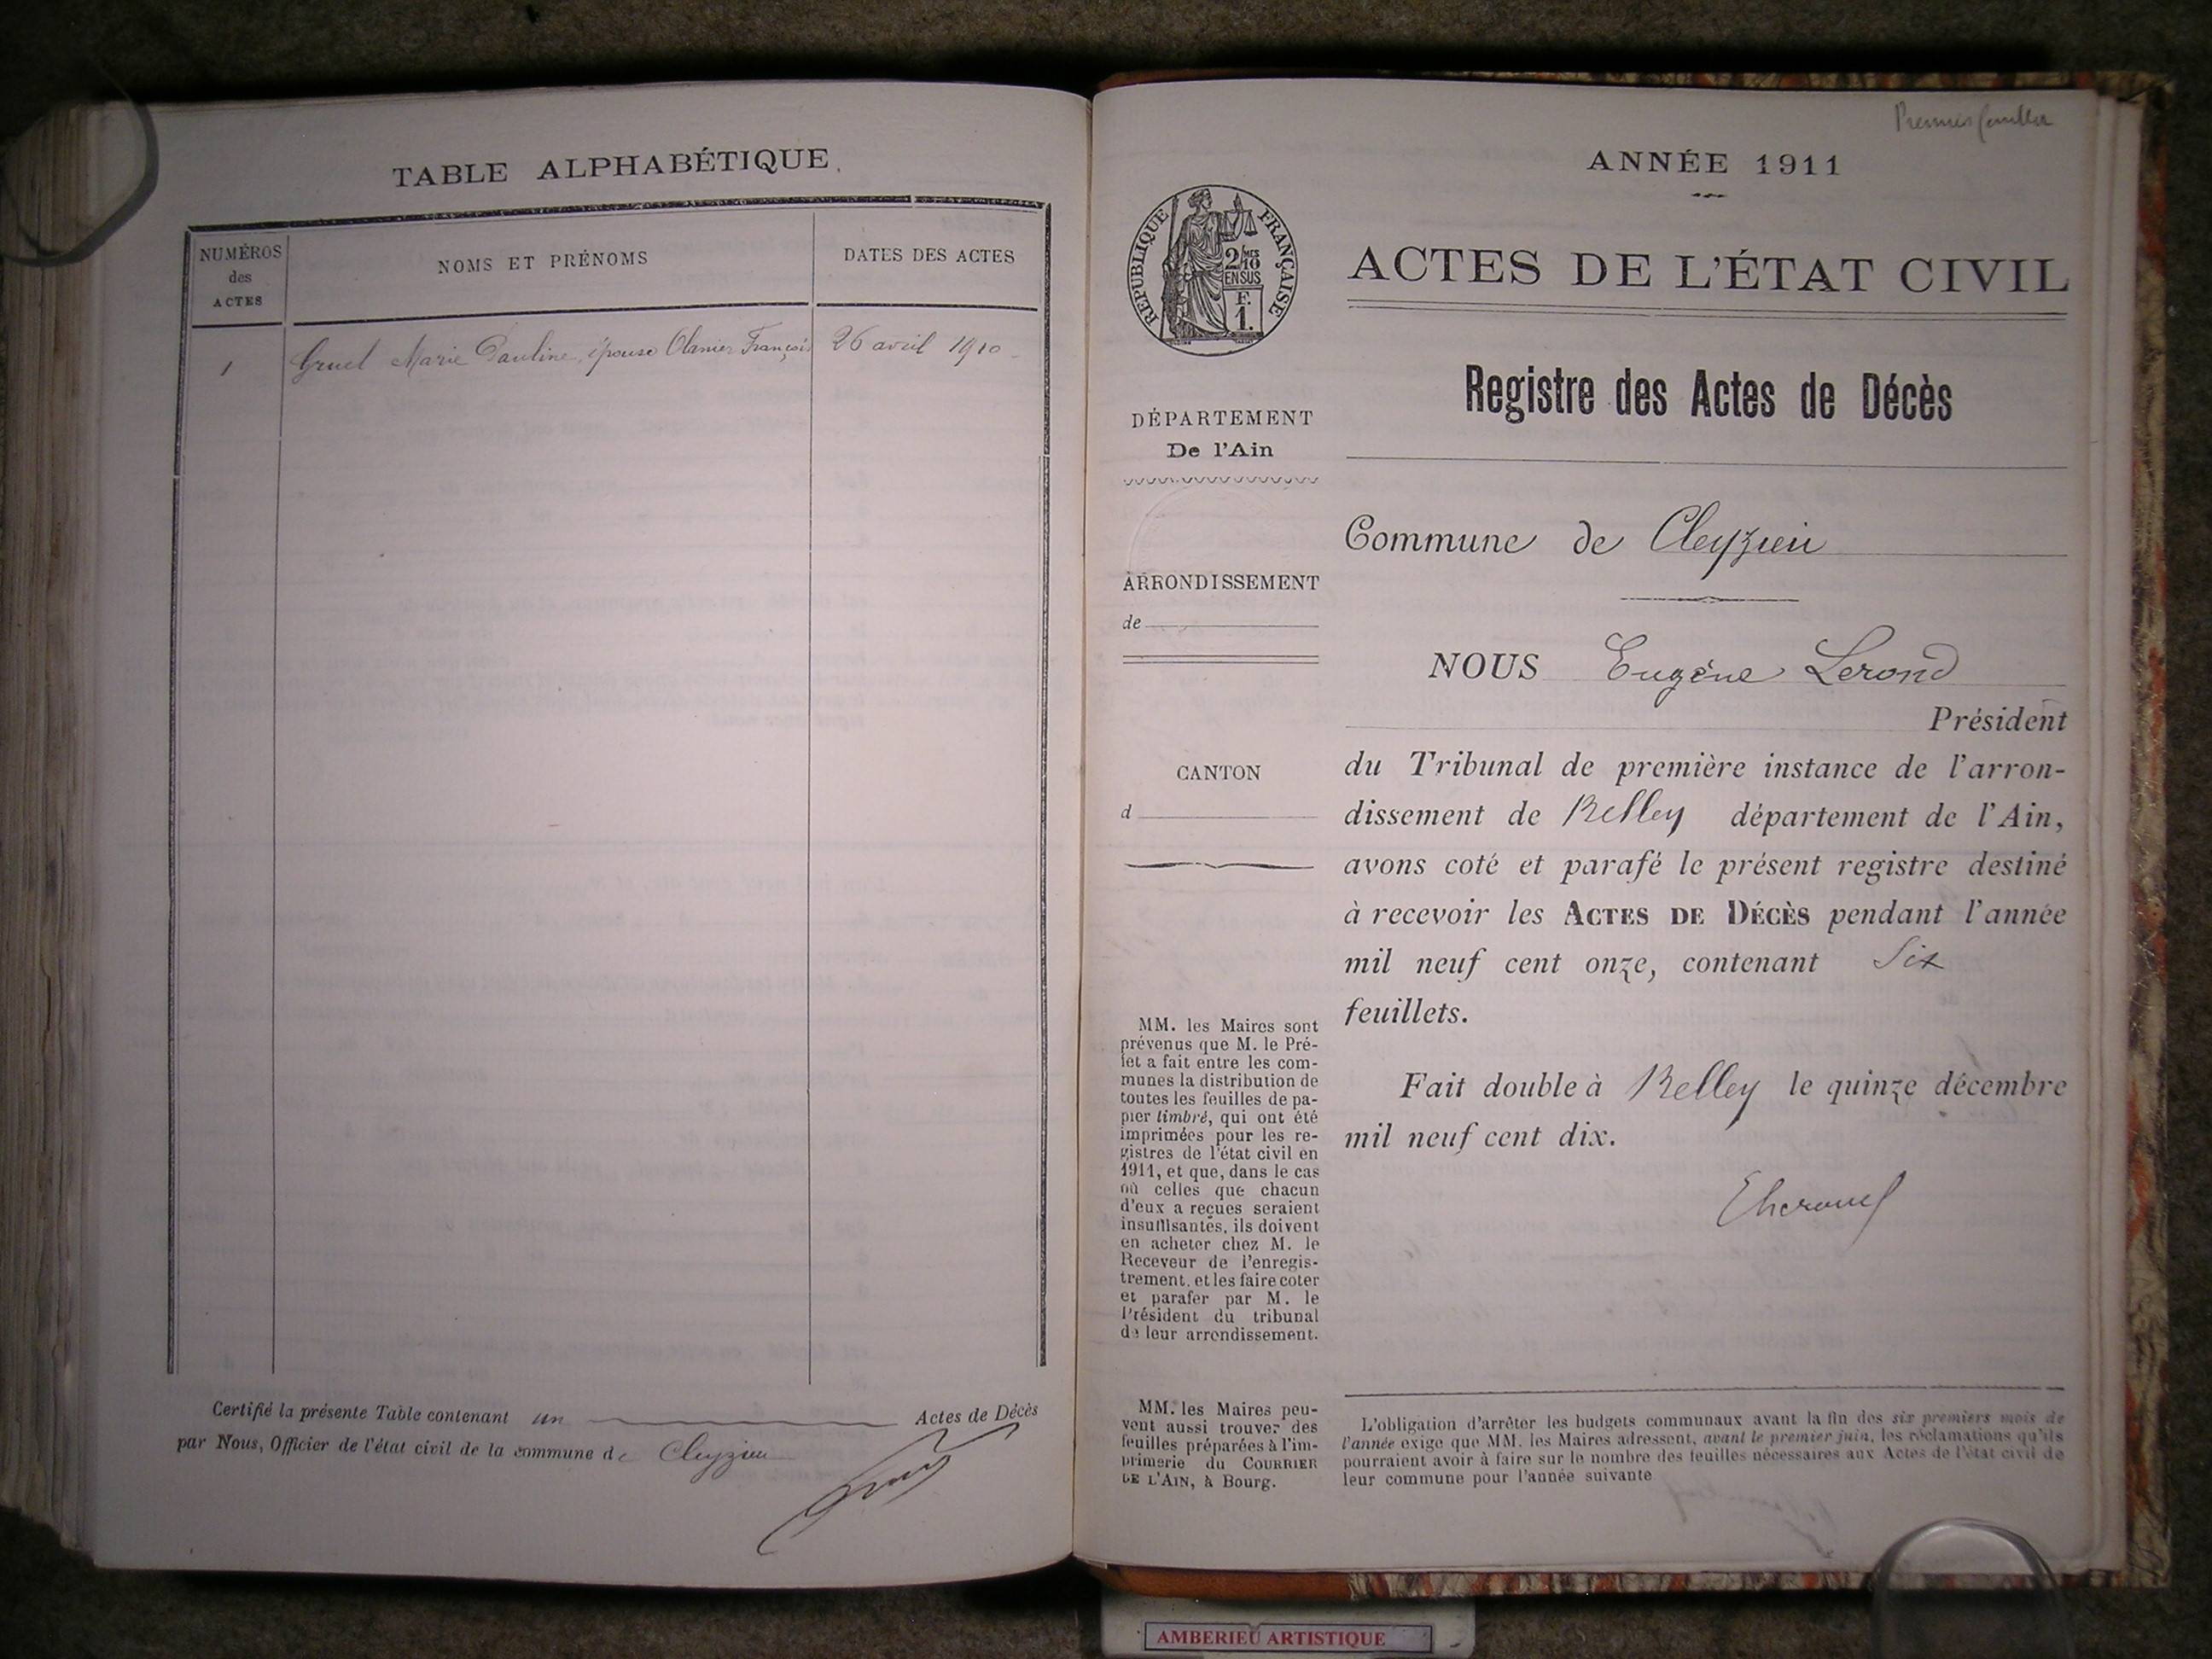 TABLE ALPHABÉTIQUE
NUMÉROS
des
ACTES
NOMS ET PRÉNOMS
DATES DES ACTES
1 Gruel Marie Pauline, épouse François 26 avril 1910
Certifié la présente Table contenant un Actes de Décès
par Nous, Officier de l'état civil de la commune de Cleyzieu
Premier feuillet
ANNÉE 1911
RÉPUBLIQUE FRANÇAISE
2/10 MES
EN SUS
F.
1.
ACTES DE L'ÉTAT CIVIL
Registre des Actes de Décès
DÉPARTEMENT
De l'Ain
ARRONDISSEMENT
de
CANTON
d
MM. les Maires sont
prévenus que M. le Pré-
fet a fait entre les com-
munes la distribution de
toutes les feuilles de pa-
pier timbré, qui ont été
imprimées pour les re-
gistres de l'état civil en
1911, et que, dans le cas
où celles que chacun
d'eux a reçues seraient
insuffisantes, ils doivent
en acheter chez M. le
Receveur de l'enregis-
trement, et les faire coter
et parafer par M. le
Président du tribunal
de leur arrondissement.
MM. les Maires peu-
vent aussi trouver des
feuilles préparées à l'im-
primerie du COURRIER
DE L'AIN, à Bourg.
Commune de Cleyzieu
NOUS Eugène Lerond
Président
du Tribunal de première instance de l'arron-
dissement de Belley département de l'Ain,
avons coté et parafé le présent registre destiné
à recevoir les ACTES DE DÉCÈS pendant l'année
mil neuf cent onze, contenant Six
feuillets.
Fait double à Belley le quinze décembre
mil neuf cent dix.
L'obligation d'arrêter les budgets communaux avant la fin des six premiers mois de
l'année exige que MM. les Maires adressent, avant le premier juin, les réclamations qu'ils
pourraient avoir à faire sur le nombre des feuilles nécessaires aux Actes de l'état civil de
leur commune pour l'année suivante
AMBERIEU ARTISTIQUE